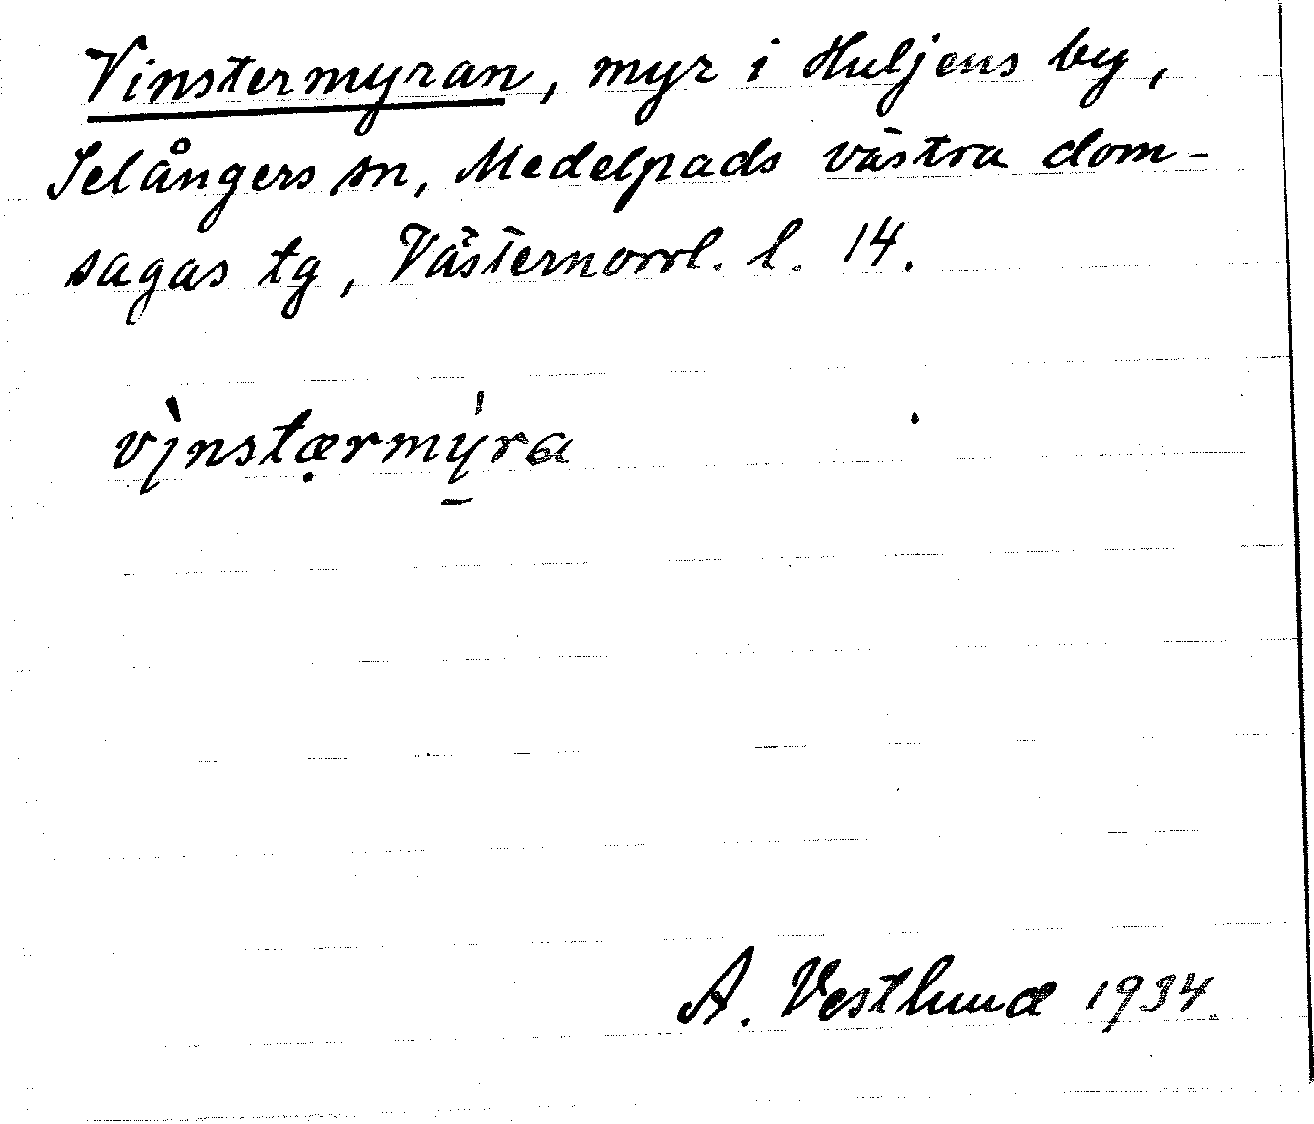 Vinstermyran, myr i Huljens by,
Selångers sn, Medelpads västra dom-
sagas tg, Västernorrl. l. 14.
vı̀nstæ̣rmy̠̍ra
A. Vestlund 1934.